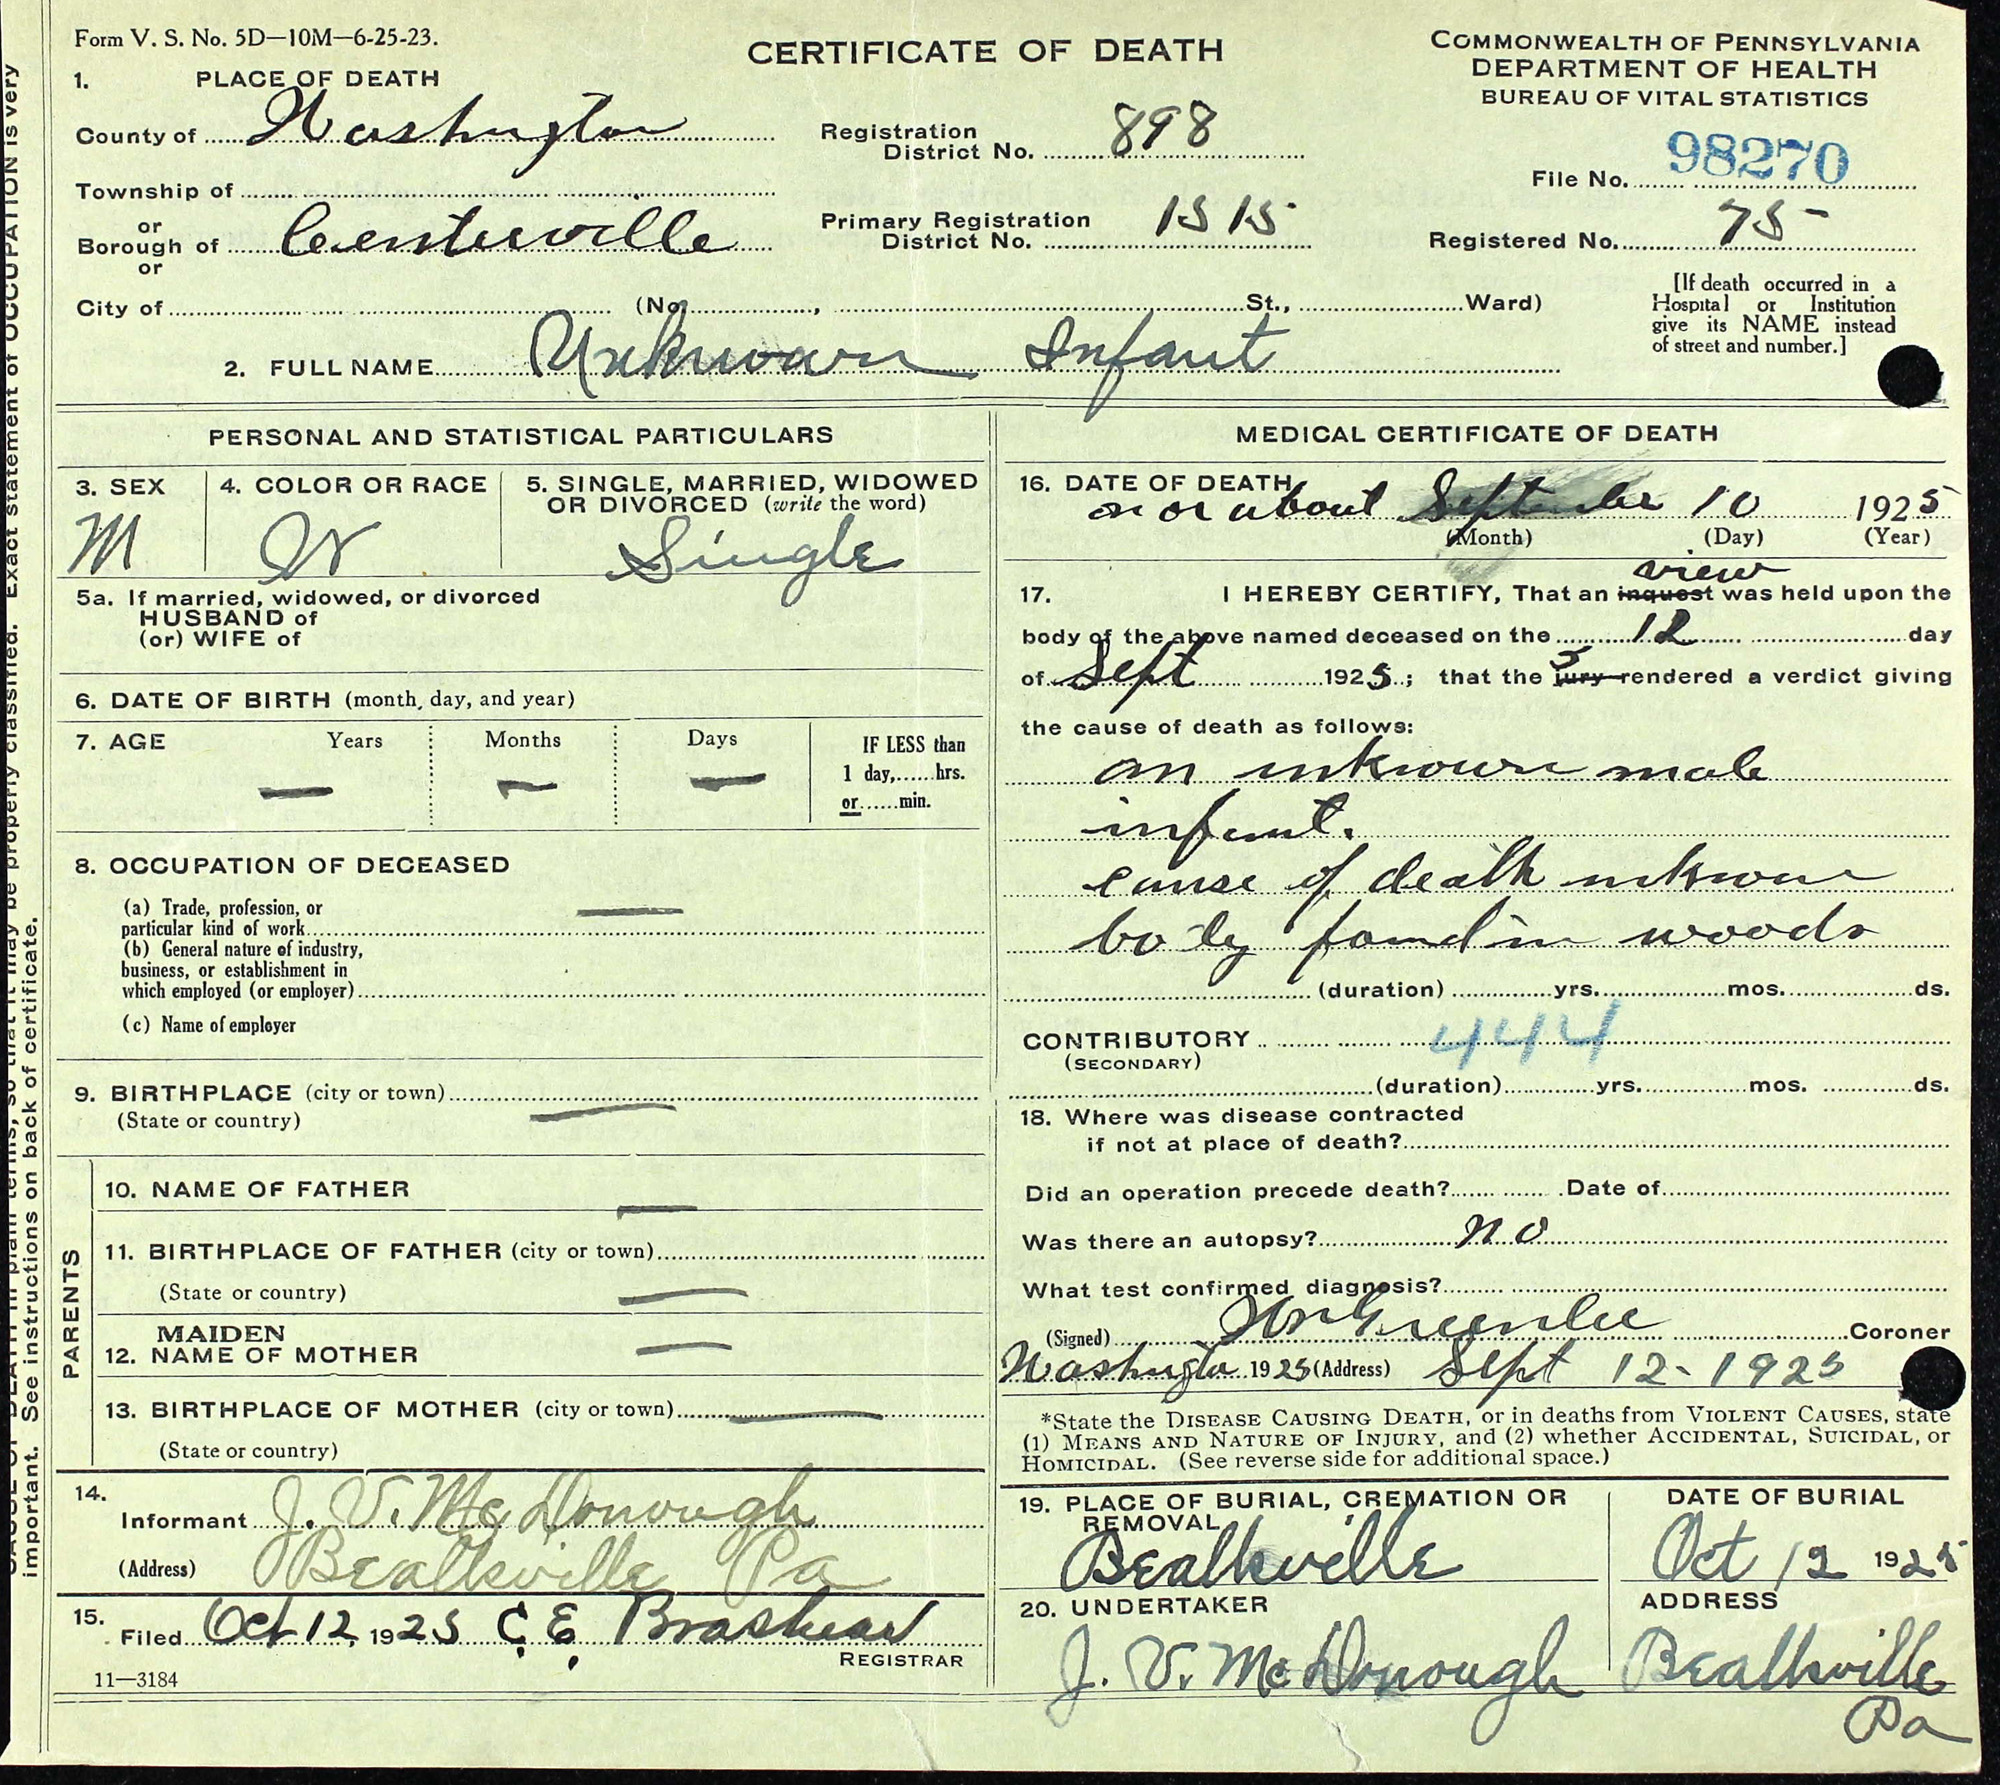 Form V. S. No. 5D—10M—6-25-23.
CERTIFICATE OF DEATH
COMMONWEALTH OF PENNSYLVANIA
DEPARTMENT OF HEALTH
BUREAU OF VITAL STATISTICS
1. PLACE OF DEATH
County of Washington
Registration District No. 898
File No. 98270
Township of
or
Borough of Centerville
or
Primary Registration District No. 1515
Registered No. 75
City of (No. , St., Ward)
[If death occurred in a
Hospital or Institution
give its NAME instead
of street and number.]
2. FULL NAME Unknown Infant
PERSONAL AND STATISTICAL PARTICULARS
3. SEX
M
4. COLOR OR RACE
W
5. SINGLE, MARRIED, WIDOWED
OR DIVORCED (write the word)
Single
5a. If married, widowed, or divorced
HUSBAND of
(or) WIFE of
6. DATE OF BIRTH (month, day, and year)
7. AGE Years Months Days
— — —
IF LESS than
1 day,......hrs.
or......min.
8. OCCUPATION OF DECEASED
(a) Trade, profession, or
particular kind of work —
(b) General nature of industry,
business, or establishment in
which employed (or employer)
(c) Name of employer
9. BIRTHPLACE (city or town) —
(State or country)
PARENTS
10. NAME OF FATHER —
11. BIRTHPLACE OF FATHER (city or town)
(State or country) —
MAIDEN
12. NAME OF MOTHER —
13. BIRTHPLACE OF MOTHER (city or town) —
(State or country)
14.
Informant J. V. McDonough
(Address) Beallsville Pa
15.
Filed Oct 12, 1925 C. E. Brashear
REGISTRAR
11—3184
MEDICAL CERTIFICATE OF DEATH
16. DATE OF DEATH
on or about September 10 1925
(Month) (Day) (Year)
view
17. I HEREBY CERTIFY, That an inquest was held upon the
body of the above named deceased on the 12 day
of Sept 1925; that the jury rendered a verdict giving
the cause of death as follows:
an unknown male
infant.
cause of death unknown
body found in woods
(duration) yrs. mos. ds.
CONTRIBUTORY 444
(SECONDARY)
(duration) yrs. mos. ds.
18. Where was disease contracted
if not at place of death?
Did an operation precede death? Date of
Was there an autopsy? no
What test confirmed diagnosis?
(Signed) Greenlee Coroner
Washington 1925 (Address) Sept 12-1925
*State the DISEASE CAUSING DEATH, or in deaths from VIOLENT CAUSES, state
(1) MEANS AND NATURE OF INJURY, and (2) whether ACCIDENTAL, SUICIDAL, or
HOMICIDAL. (See reverse side for additional space.)
19. PLACE OF BURIAL, CREMATION OR
REMOVAL
Beallsville
DATE OF BURIAL
Oct 12 1925
20. UNDERTAKER
J. V. McDonough
ADDRESS
Beallsville
Pa
important. See instructions on back of certificate.